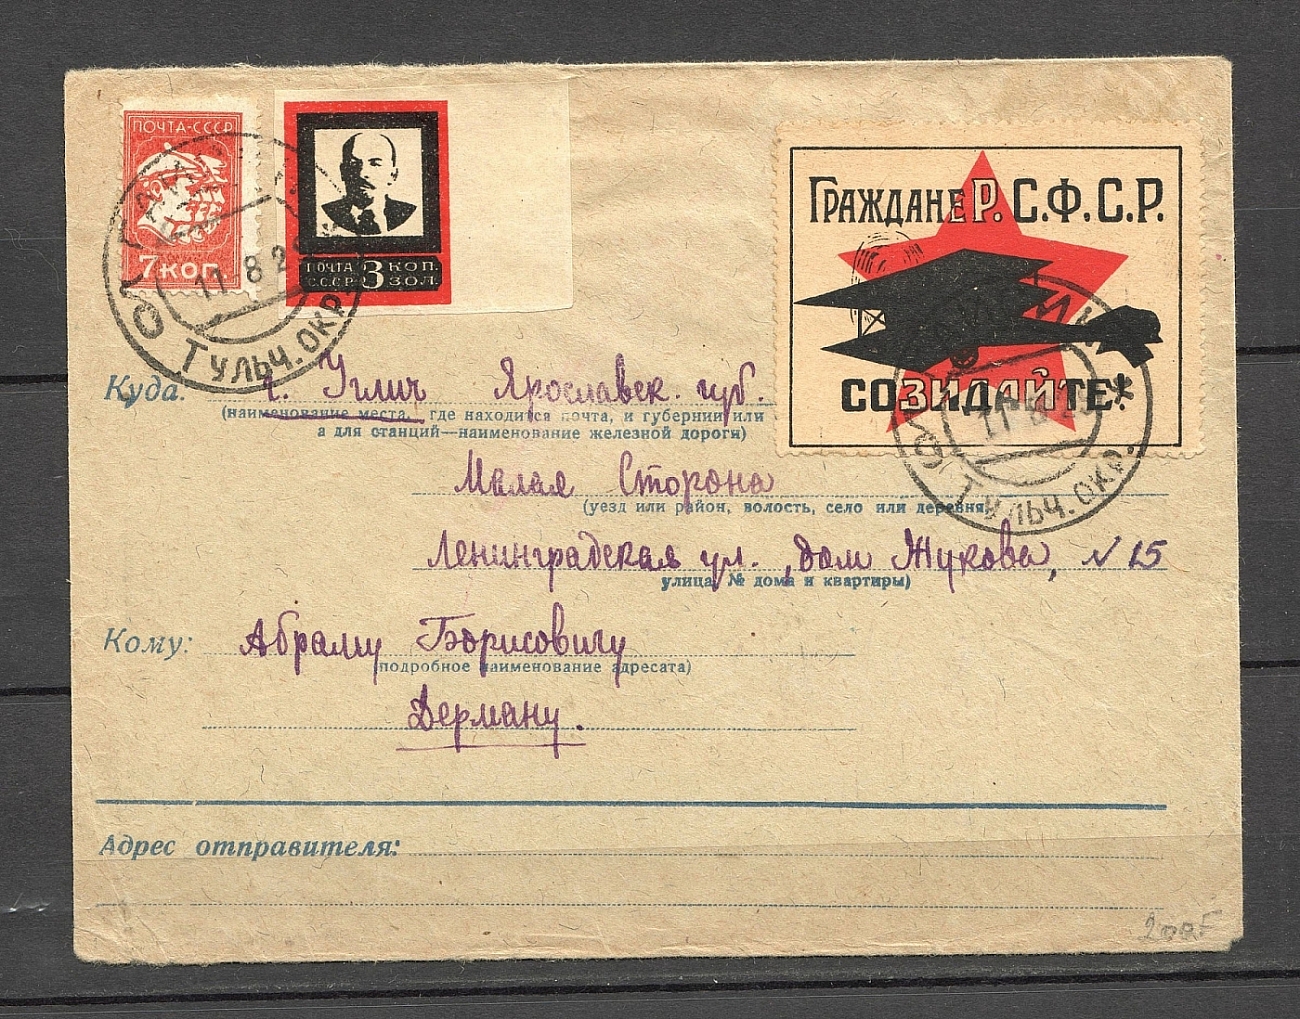 ПОЧТА-СССР
7 КОП.
ПОЧТА 3 КОП.
СССР ЗОЛ.
ГРАЖДАНЕ Р.С.Ф.С.Р.
СОЗИДАЙТЕ!
11 8 2
ТУЛЬЧ. ОКР.
11
ТУЛЬЧ. ОКР.
Куда: г. Углич Ярославск. губ.
(наименование места, где находится почта, и губернии или
а для станций—наименование железной дороги)
Малая Сторона
(уезд или район, волость, село или деревня)
Ленинградская ул., дом Жукова, N 15
улица, № дома и квартиры)
Кому: Абраму Борисовичу
(подробное наименование адресата)
Дерману.
Адрес отправителя: